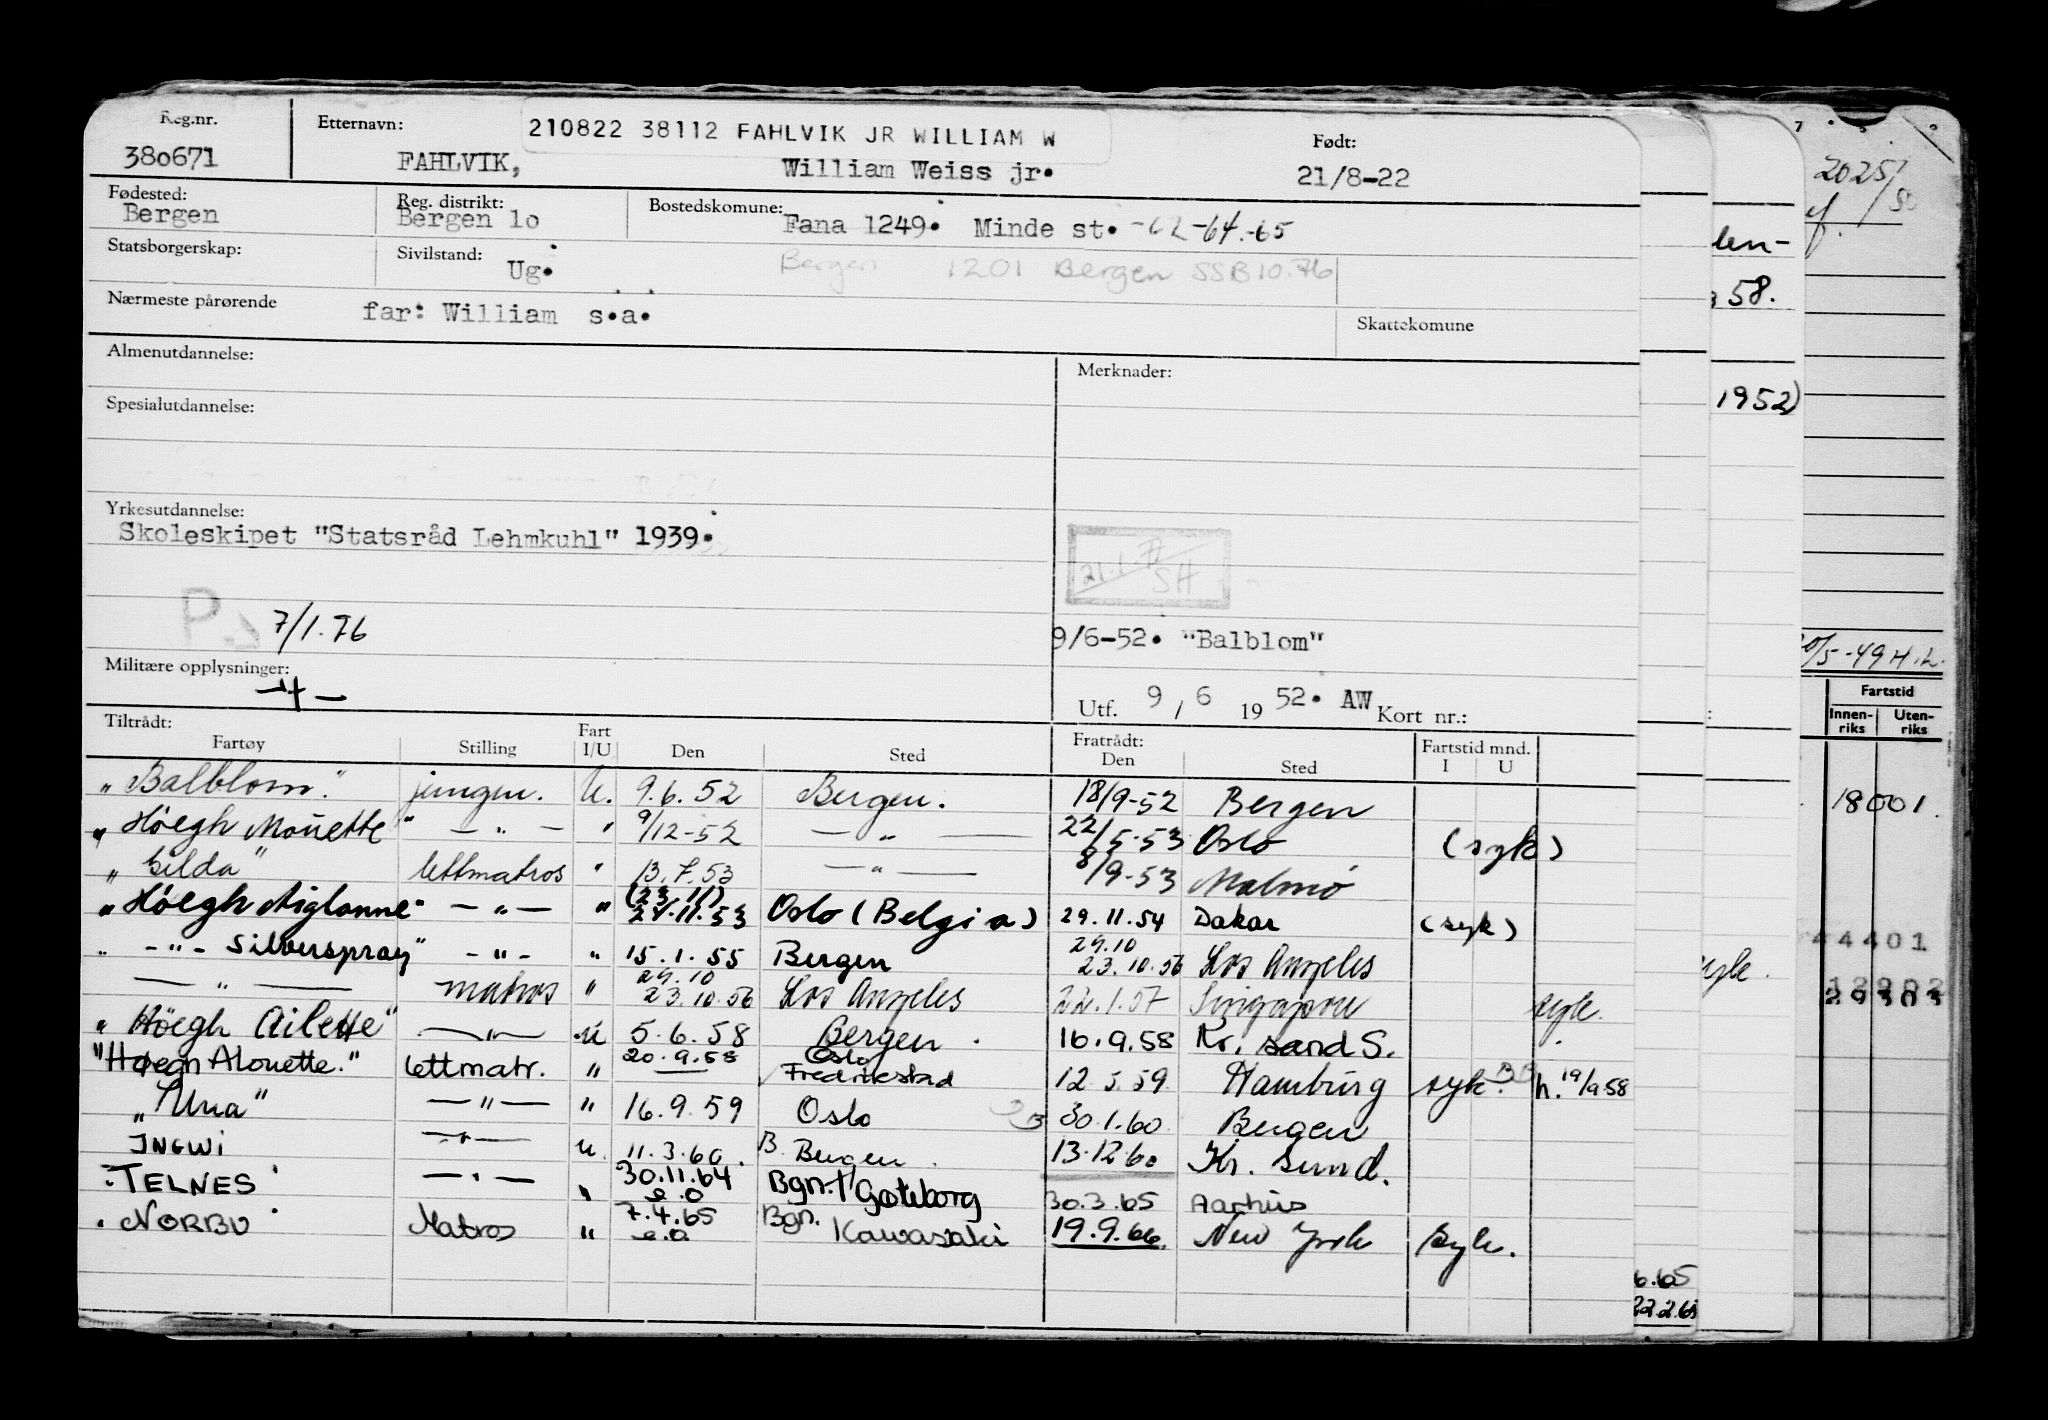 Reg.nr. Etternavn: 210822 38112 FAHLVIK JR WILLIAM W Født:
380671 FAHLVIK, William Weiss jr. 21/8-22
Fødested: Reg. distrikt: Bostedskomune:
Bergen Bergen 1o Fana 1249. Minde st. -62-64-65
Statsborgerskap: Sivilstand: Ug. Bergen 1201 Bergen SSB 10.76
Nærmeste pårørende far: William s.a. Skattekomune
Almenutdannelse: Merknader:
Spesialutdannelse:
Yrkesutdannelse:
Skoleskipet "Statsråd Lehmkuhl" 1939.
7/1.76
9/6-52. "Balblom"
Militære opplysninger:
Utf. 9 / 6 19 52. AW Kort nr.:
Tiltrådt: Fratrådt:
Fartøy Stilling Fart I/U Den Sted Den Sted Fartstid mnd. I U
"Balblom" jungm. U. 9.6.52 Bergen. 18/9-52 Bergen
"Høegh Mouette" — " — " 9/12-52 — " — 22/5-53 Oslo (syk)
"Gilda" lettmatros " 13.7.53 — " — 8/9-53 Malmö
"Høegh Aiglonne" — " — " (23.11) 24.11.53 Oslo (Belgia) 29.11.54 Dakar (syk)
" — " — Silverspray" — " — " 15.1.55 Bergen 24.10 23.10.56 Los Angeles
— " — matros " 24.10 23.10.56 Los Angeles 22.1.57 Singapore syk.
"Høegh Ailette" — " — U 5.6.58 Bergen. 16.9.58 Kr. sand S.
"Høegh Alouette." lettmatr. " 20.9.58 Oslo Fredrikstad 12.5.59 Hamburg syk. h. 19/9 58
"Una" — " — " 16.9.59 Oslo 30.1.60 Bergen
INGWI — " — U. 11.3.60. B. Bergen. 13.12.60 Kr. sund.
"TELNES" — " — " 30.11.64 e.o Bgn. / Gøteborg 30.3.65 Aarhus
"NORBU" Matros " 7.4.65 e.o Bgn. Kawasaki 19.9.66. New York Syk.
58.
1952)
6.65
22.2.65
2025/50
20/5-49 H.L.
Fartstid
Innen-riks Uten-riks
18001.
44401